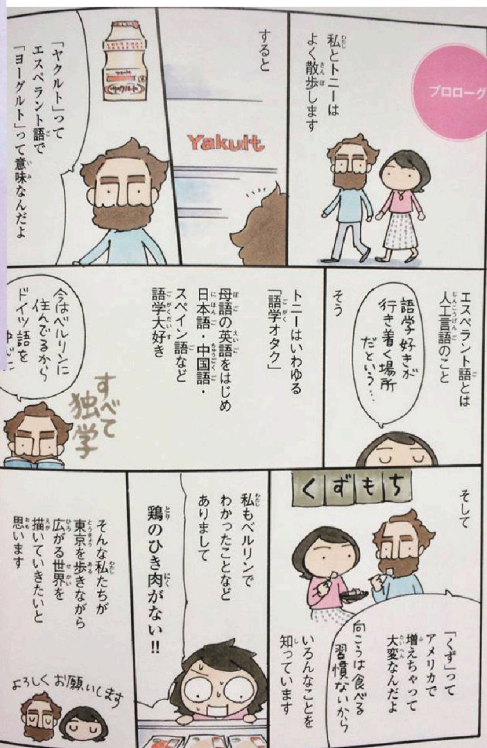 プロローグ
私とトニーは
よく散歩します
すると
Yakult
「ヤクルト」って
エスペラント語で
「ヨーグルト」って意味なんだよ
エスペラント語とは
人工言語のこと
語学好きが
行き着く場所
だという…
そう
トニーはいわゆる
「語学オタク」
母語の英語をはじめ
日本語・中国語・
スペイン語など
語学大好き
今はベルリンに
住んでるから
ドイツ語を
すべて
独学
そして
くずもち
「くず」って
アメリカで
増えちゃって
大変なんだよ
向こうは食べる
習慣ないから
いろんなことを
知っています
私もベルリンで
わかったことなど
ありまして
鶏のひき肉がない!!
そんな私たちが
東京を歩きながら
広がる世界を
描いていきたいと
思います
よろしくお願いします